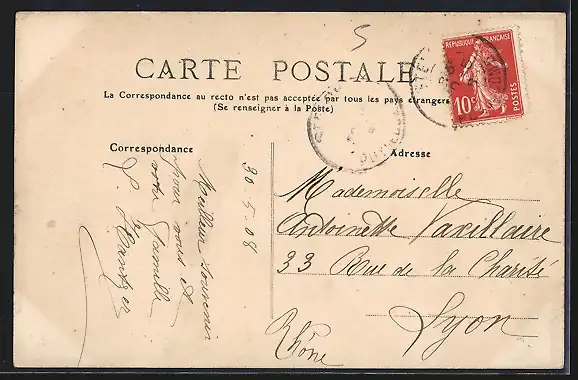 5
CARTE POSTALE
La Correspondance au recto n'est pas acceptée par tous les pays étrangers
(Se renseigner à la Poste)
REPUBLIQUE FRANÇAISE
10c
POSTES
Correspondance
30-5-08
Meilleur souvenir
pour vous et
votre famille
Adresse
Mademoiselle
Antoinette Vaxillaire
33 Rue de la Charité
Lyon
Rhône